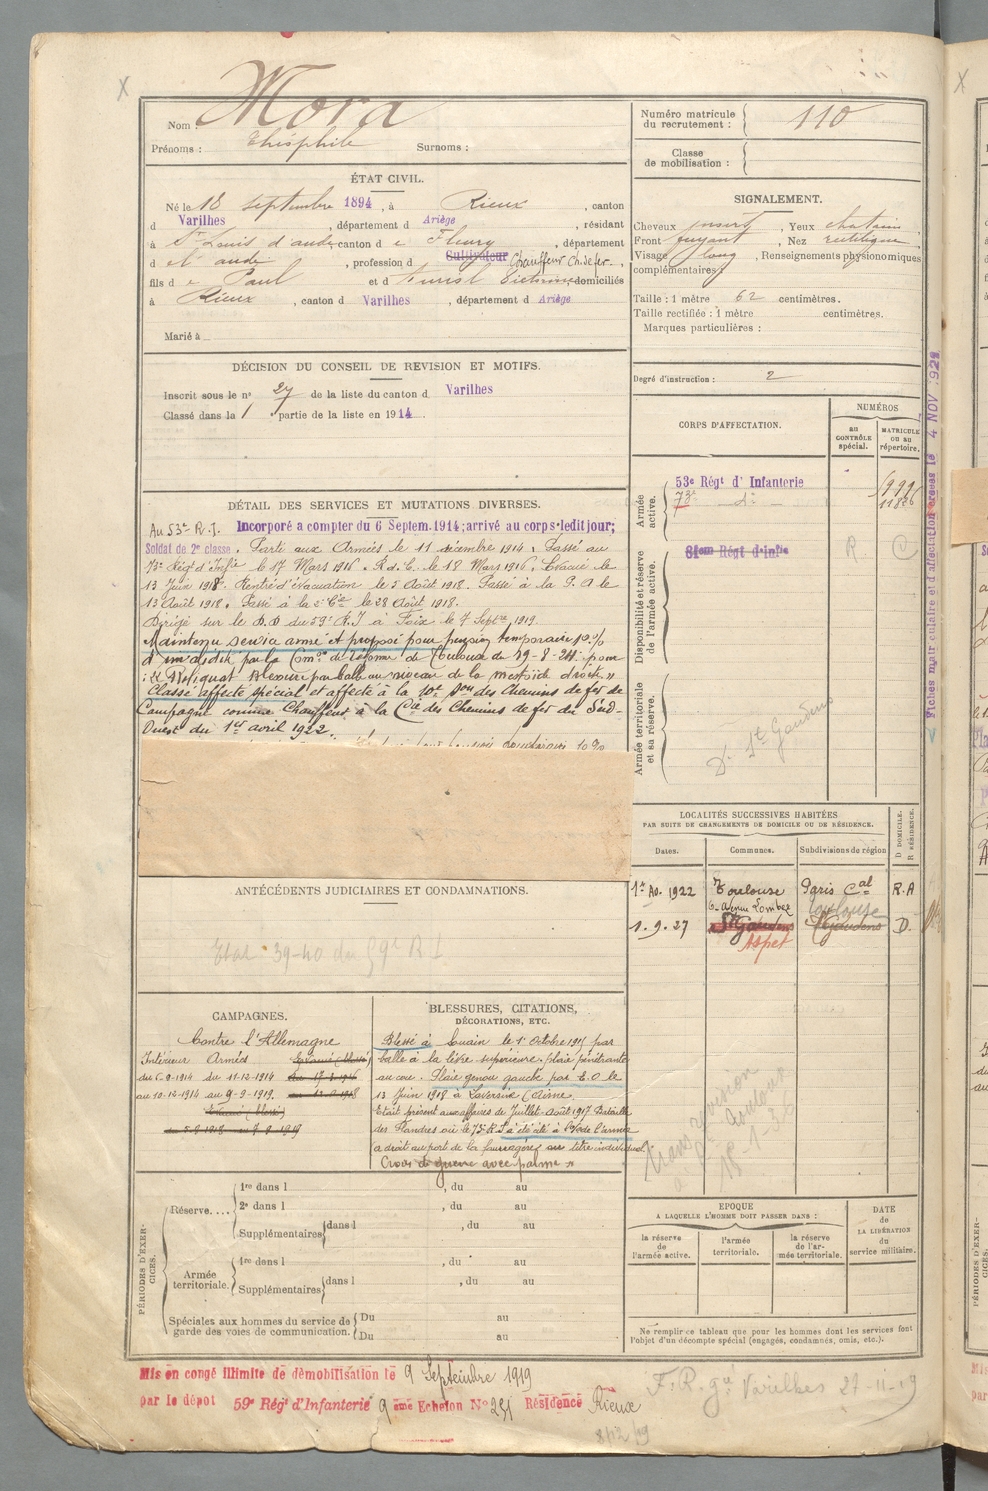 Nom : Mora
Prénoms : Théophile Surnoms :
Numéro matricule
du recrutement : 110
Classe
de mobilisation :
ÉTAT CIVIL.
Né le 18 septembre 1894, à Rieux, canton
d Varilhes, département d Ariège, résidant
à St Louis d'aude canton d e Fleury, département
d el aude, profession d Cultivateur Chauffeur Ch. de fer,
fils d e Paul et d domiciliés
à Rieux, canton d Varilhes, département d Ariège
Marié à
SIGNALEMENT.
Cheveux Yeux chatains,
Front fuyant, Nez rectiligne
Visage long, Renseignements physionomiques
complémentaires :
Taille : 1 mètre 62 centimètres.
Taille rectifiée : 1 mètre centimètres.
Marques particulières :
Degré d'instruction : 2
DÉCISION DU CONSEIL DE REVISION ET MOTIFS.
Inscrit sous le n° 27 de la liste du canton d Varilhes
Classé dans la 1 partie de la liste en 1914.
CORPS D'AFFECTATION.
NUMÉROS
au
CONTRÔLE
spécial.
MATRICULE
ou au
répertoire.
Armée
active.
53e Régt d'Infanterie
73e d°
11826
Disponibilité et réserve
de l'armée active.
81em Régt d'Infie
R. C
Armée territoriale
et sa réserve.
D. St Gaudens
Fiches matriculaire et d'affectation créées le 4 NOV 1921
DÉTAIL DES SERVICES ET MUTATIONS DIVERSES.
Au 53e R.I. Incorporé a compter du 6 Septem. 1914; arrivé au corps ledit jour;
Soldat de 2e classe. Parti aux Armées le 11 décembre 1914. Passé au
73e Régt d'Infie le 17 Mars 1916. R.d.C. le 18 Mars 1916. Evacué le
13 Juin 1918. Rentré d'évacuation le 5 Août 1918. Passé à la P. A le
13 Août 1918. Passé à la 2e Cie le 28 Août 1918.
Dirigé sur le D.D du 59e R.I à Foix le 7 Septre 1919.
Maintenu service armé et proposé pour pension temporaire 10 %
d'invalidité par la Comon de réforme de Toulouse du 29-8-24 pour
: "Reliquat blessure par balle au niveau de la mastoïde droite"
Classé affecté spécial et affecté à la 10e Son des Chemins de fer de
Campagne comme Chauffeur à la Cie des Chemins de fer du Sud-
Ouest du 1er avril 1922.
LOCALITÉS SUCCESSIVES HABITÉES
PAR SUITE DE CHANGEMENTS DE DOMICILE OU DE RÉSIDENCE.
Dates. Communes. Subdivisions de région
D DOMICILE.
R RÉSIDENCE.
1er Av. 1922 Toulouse Paris Cal R.A
Toulouse
1.9.27 St Gaudens St Gaudens D.
Aspet
ANTÉCÉDENTS JUDICIAIRES ET CONDAMNATIONS.
Etat 39-40 du 59e R I
CAMPAGNES.
Contre l'Allemagne
Intérieur Armées Evacué (blessé)
du 6-9-1914 du 11-12-1914
au 10-12-1914 au 9-9-1919.
Evacué (blessé)
BLESSURES, CITATIONS,
DÉCORATIONS, ETC.
Blessé à Louain le 1er Octobre 1915 par
balle à la lèvre supérieure, plaie pénétrante
au cou. Plaie genou gauche par E.O le
13 Juin 1918 à Laversine (Aisne.
Etait présent aux affaires de Juillet-Août 1917 Bataille
des Flandres où le 73e R.I a été cité à l'ordre de l'armée
a droit au port de la fourragère à titre individuel.
Croix de guerre avec palme »
PÉRIODES D'EXERCICES.
Réserve....
1re dans l , du au
2e dans l , du au
Supplémentaires dans l , du au
Armée
territoriale.
1re dans l , du au
Supplémentaires dans l , du au
Spéciales aux hommes du service de
garde des voies de communication.
Du au
Du au
EPOQUE
A LAQUELLE L'HOMME DOIT PASSER DANS :
la réserve
de
l'armée active.
l'armée
territoriale.
la réserve
de l'armée territoriale.
DATE
de
LA LIBÉRATION
du
service militaire.
Ne remplir ce tableau que pour les hommes dont les services font
l'objet d'un décompte spécial (engagés, condamnés, omis, etc.).
Mis en congé illimité de démobilisation le 9 Septembre 1919
par le dépôt 59e Régt d'Infanterie 9 ème Echelon N° 251 Résidence Rieux
F. R. ga Varilhes 27-11-19